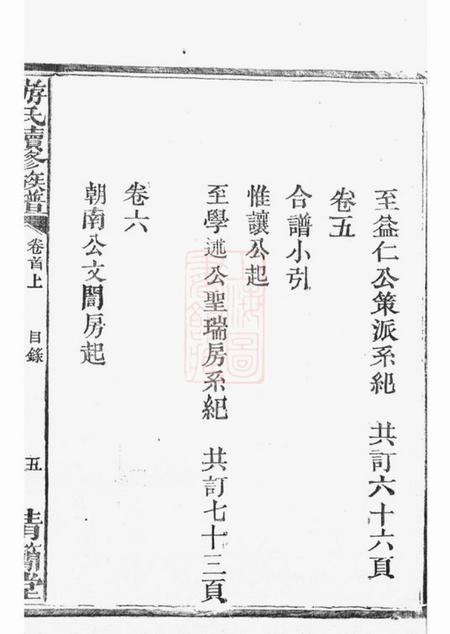 至益仁公策派系紀 共訂六十六頁
卷五
合譜小引
惟讓公起
至學述公聖瑞房系紀 共訂七十三頁
卷六
朝南公文誾房起
游氏續修族譜
卷首上
目錄
五
清蘭堂